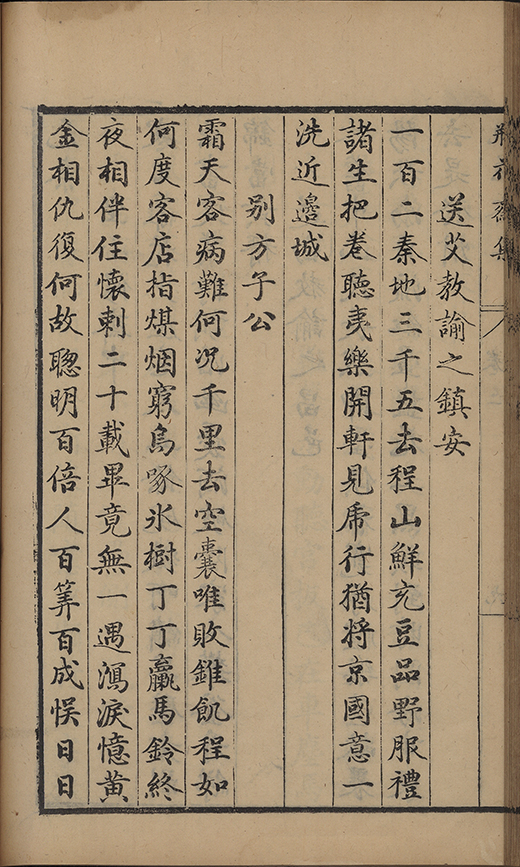 瓶花齋集
送艾教諭之鎮安
一百二秦地三千五去程山鮮充豆品野服禮
諸生把卷聽夷樂開軒見虎行猶將京國意一
洗近邊城
別方子公
霜天客病難何况千里去空囊唯敗錐飢程如
何度客店指煤烟窮鳥啄氷樹丁丁羸馬鈴終
夜相伴住懷刺二十載畢竟無一遇瀉淚憶黃
金相仇復何故聰明百倍人百筭百成悞日日